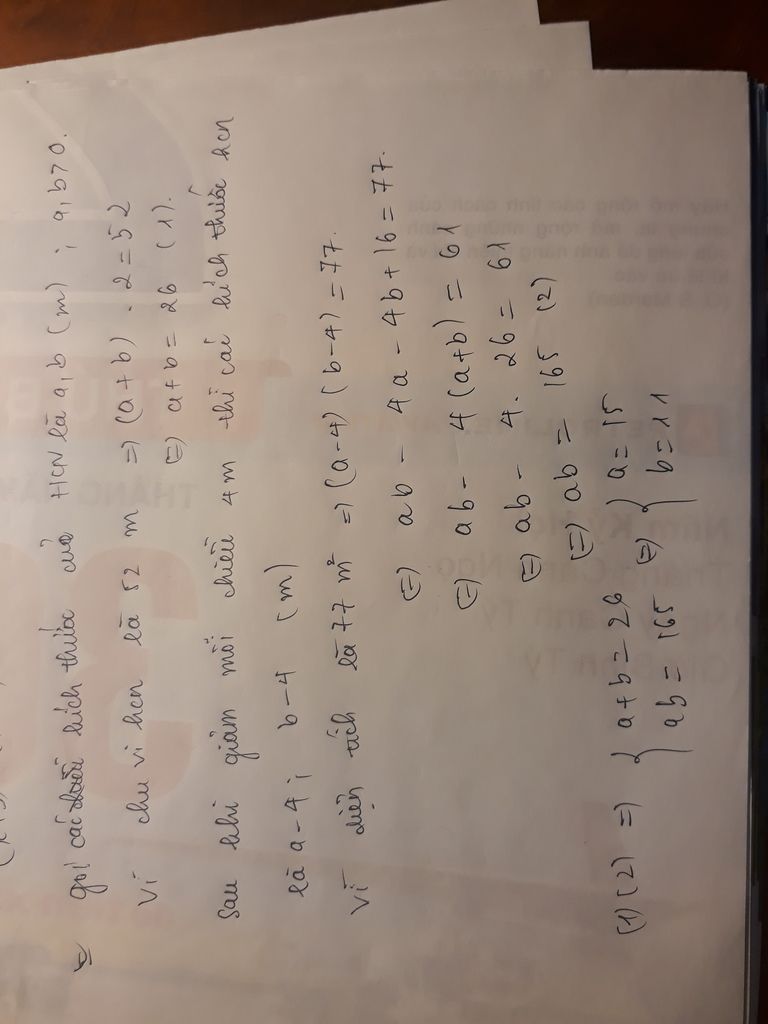 gọi các kích thước của HCN là a, b (m) ; a, b > 0.
Vì chu vi hcn là 52 m => (a + b) . 2 = 52
(=) a + b = 26 (1).
Sau khi giảm mỗi chiều 4m thì các kích thước hcn
là a - 4 ; b - 4 (m)
Vì diện tích là 77 m² => (a - 4) (b - 4) = 77.
(=) ab - 4a - 4b + 16 = 77.
(=) ab - 4 (a + b) = 61
(=) ab - 4 . 26 = 61
(=) ab = 165 (2)
(1) (2) => { a + b = 26 (=) { a = 15
ab = 165 b = 11